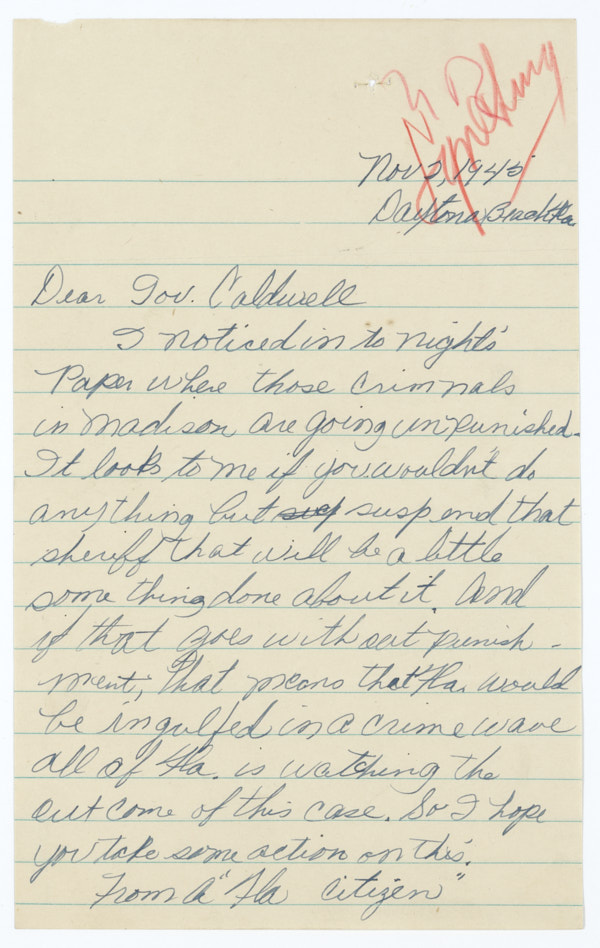 Lynching
Nov 2, 1945
Daytona Beach Fla
Dear Gov. Caldwell
I noticed in to night's
Paper where those criminals
in Madison are going unpunished.
It looks to me if you wouldn't do
anything but suspend that
sheriff that will be a little
some thing done about it. And
if that goes with out punish-
ment, that means that Fla. would
be ingulfed in a crime wave
all of Fla. is watching the
out come of this case. So I hope
you take some action on this.
From A "Fla Citizen"